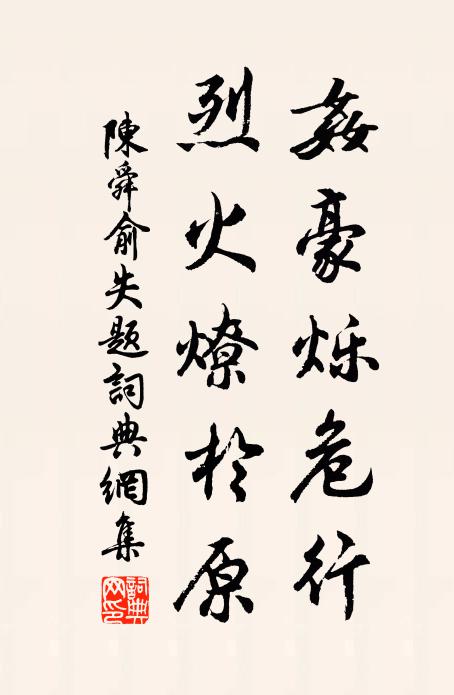 姦豪烁危行
烈火燎於原
陳舜俞失題詞典網集
詞典网印